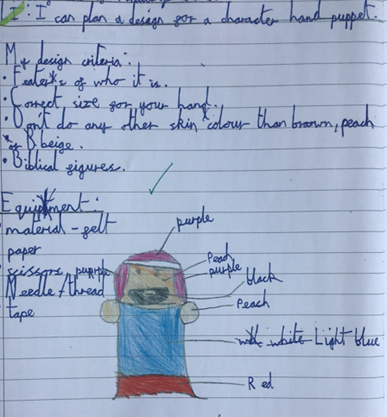 I: I can plan a design for a character hand puppet.
My design criteria:
• Features of who it is.
• Correct size for your hand.
• Don't do any other skin colour than brown, peach
or beige.
• Biblical figures.
Equipment:
material - felt
paper
scissors
Needle/thread
tape
purple
Peach
purple
purple
black
Peach
white Light blue
Red